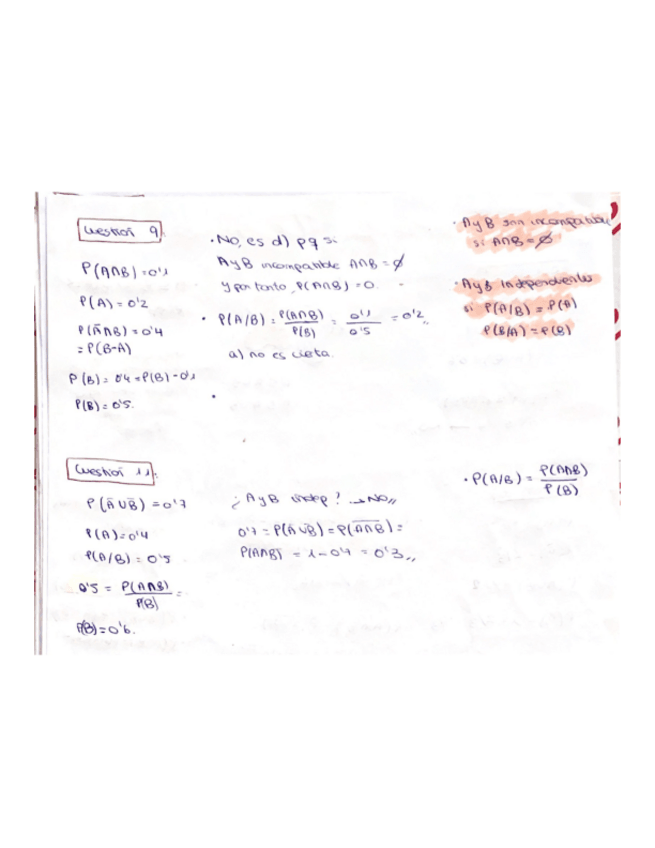 Cuestión 9.
P(A∩B) = 0'1
P(A) = 0'2
P(Ā∩B) = 0'4
= P(B-A)
P(B) = 0'4 = P(B) - 0'1
P(B) = 0'5.
· No, es d) pq si
A y B incompatible A∩B = ∅
y por tanto, P(A∩B) = 0.
· P(A/B) = P(A∩B)/P(B) = 0'1/0'5 = 0'2,,
a) no es cierta.
· A y B son incompatibles
si A∩B = ∅
· A y B Independientes
si P(A/B) = P(A)
P(B/A) = P(B)
Cuestión 11.
P(Ā∪B̄) = 0'7
P(A) = 0'4
P(A/B) = 0'5
0'5 = P(A∩B)/P(B) =
P(B) = 0'6.
¿A y B indep? → No,,
0'7 = P(Ā∪B̄) = P(A∩B)‾ =
P(A∩B) = 1 - 0'7 = 0'3,,
· P(A/B) = P(A∩B)/P(B)